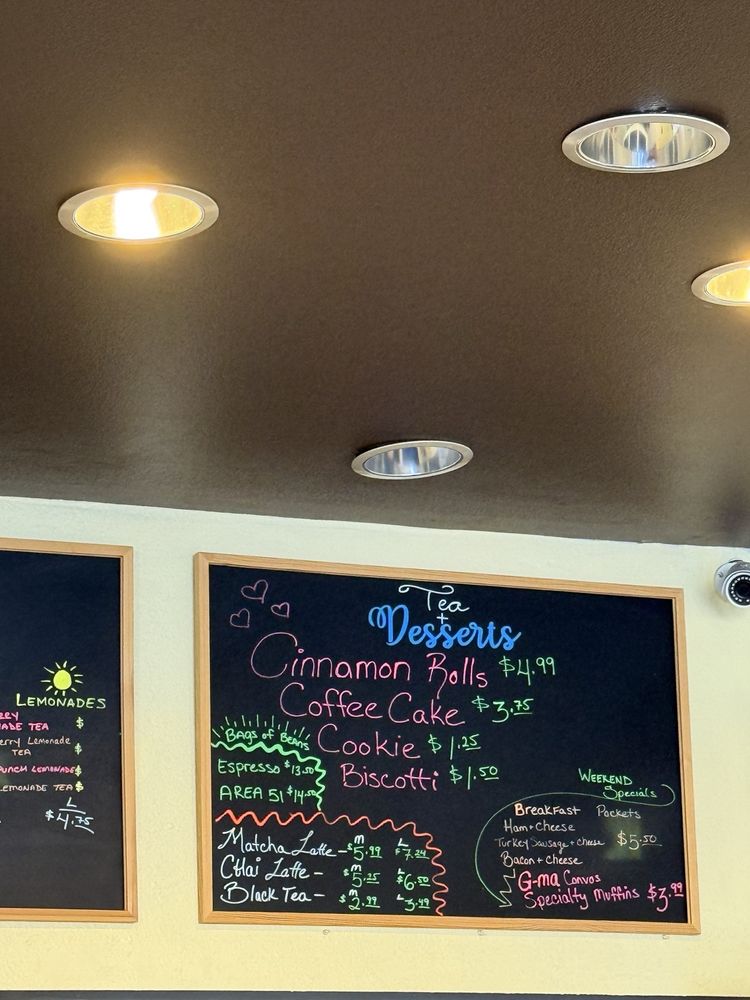 LEMONADES
ADE TEA $
erry Lemonade $
TEA
PUNCH LEMONADE $
LEMONADE TEA $
L
$4.75
Tea
+
Desserts
Cinnamon Rolls $4.99
Coffee Cake $3.75
Cookie $1.25
Biscotti $1.50
Bags of Beans
Espresso $13.50
AREA 51 $14.50
M L
Matcha Latte - $5.99 $7.24
M L
Chai Latte - $5.25 $6.50
M L
Black Tea - $2.99 3.49
WEEKEND
Specials
Breakfast Pockets
Ham + Cheese
Turkey Sausage + cheese $5.50
Bacon + Cheese
G-ma Convos
Specialty Muffins $3.99